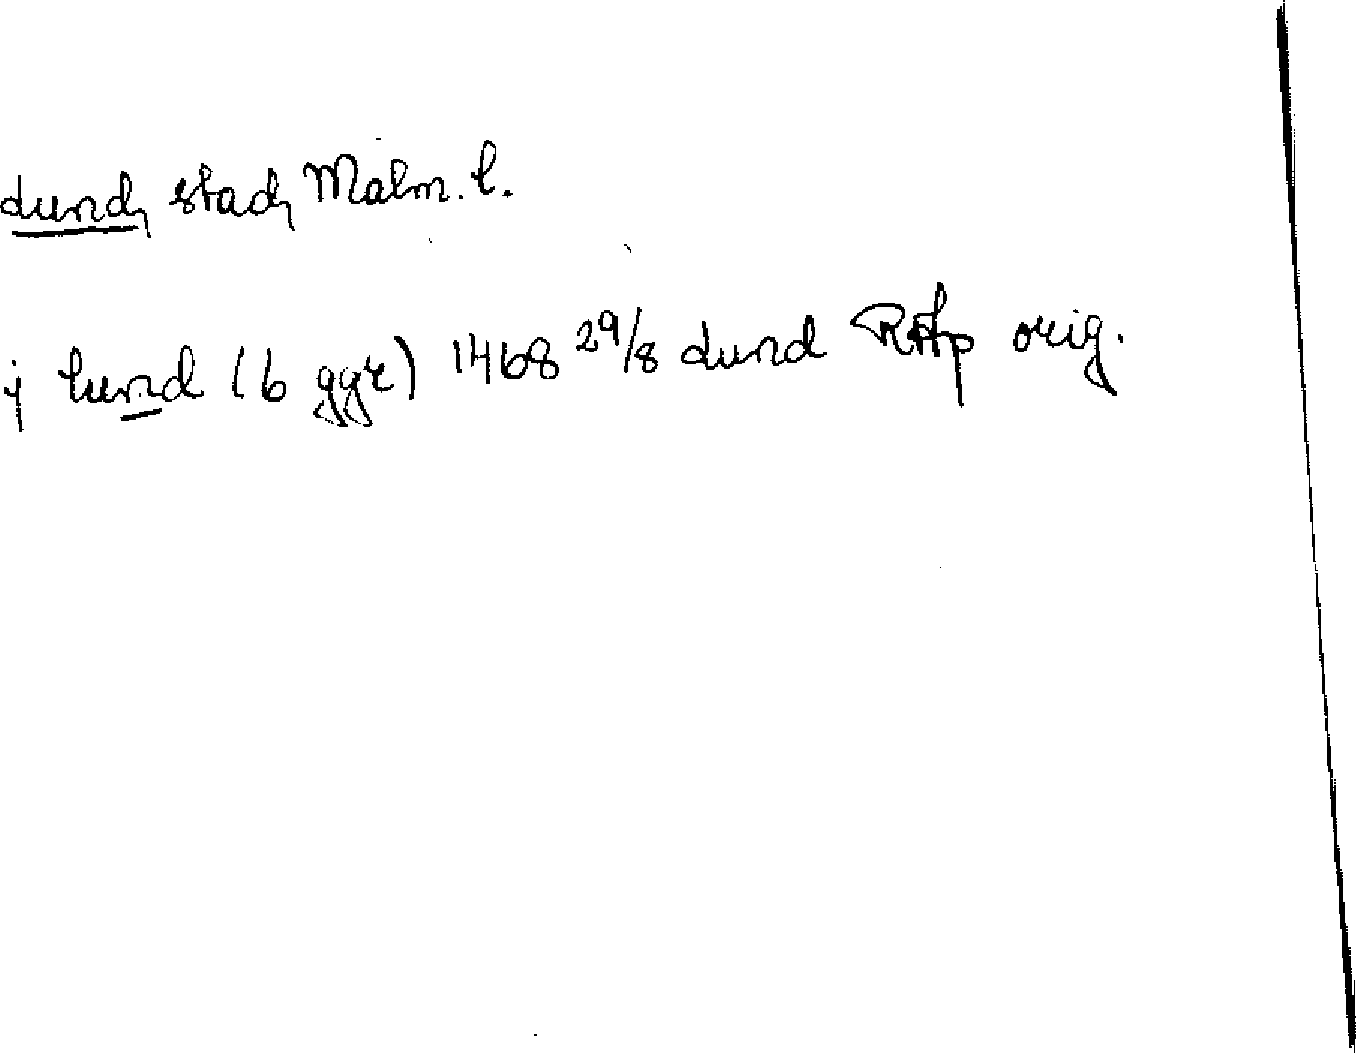 Lund, stad, Malm. l.
j lund (6 ggr) 1468 29/8 Lund RAp orig.